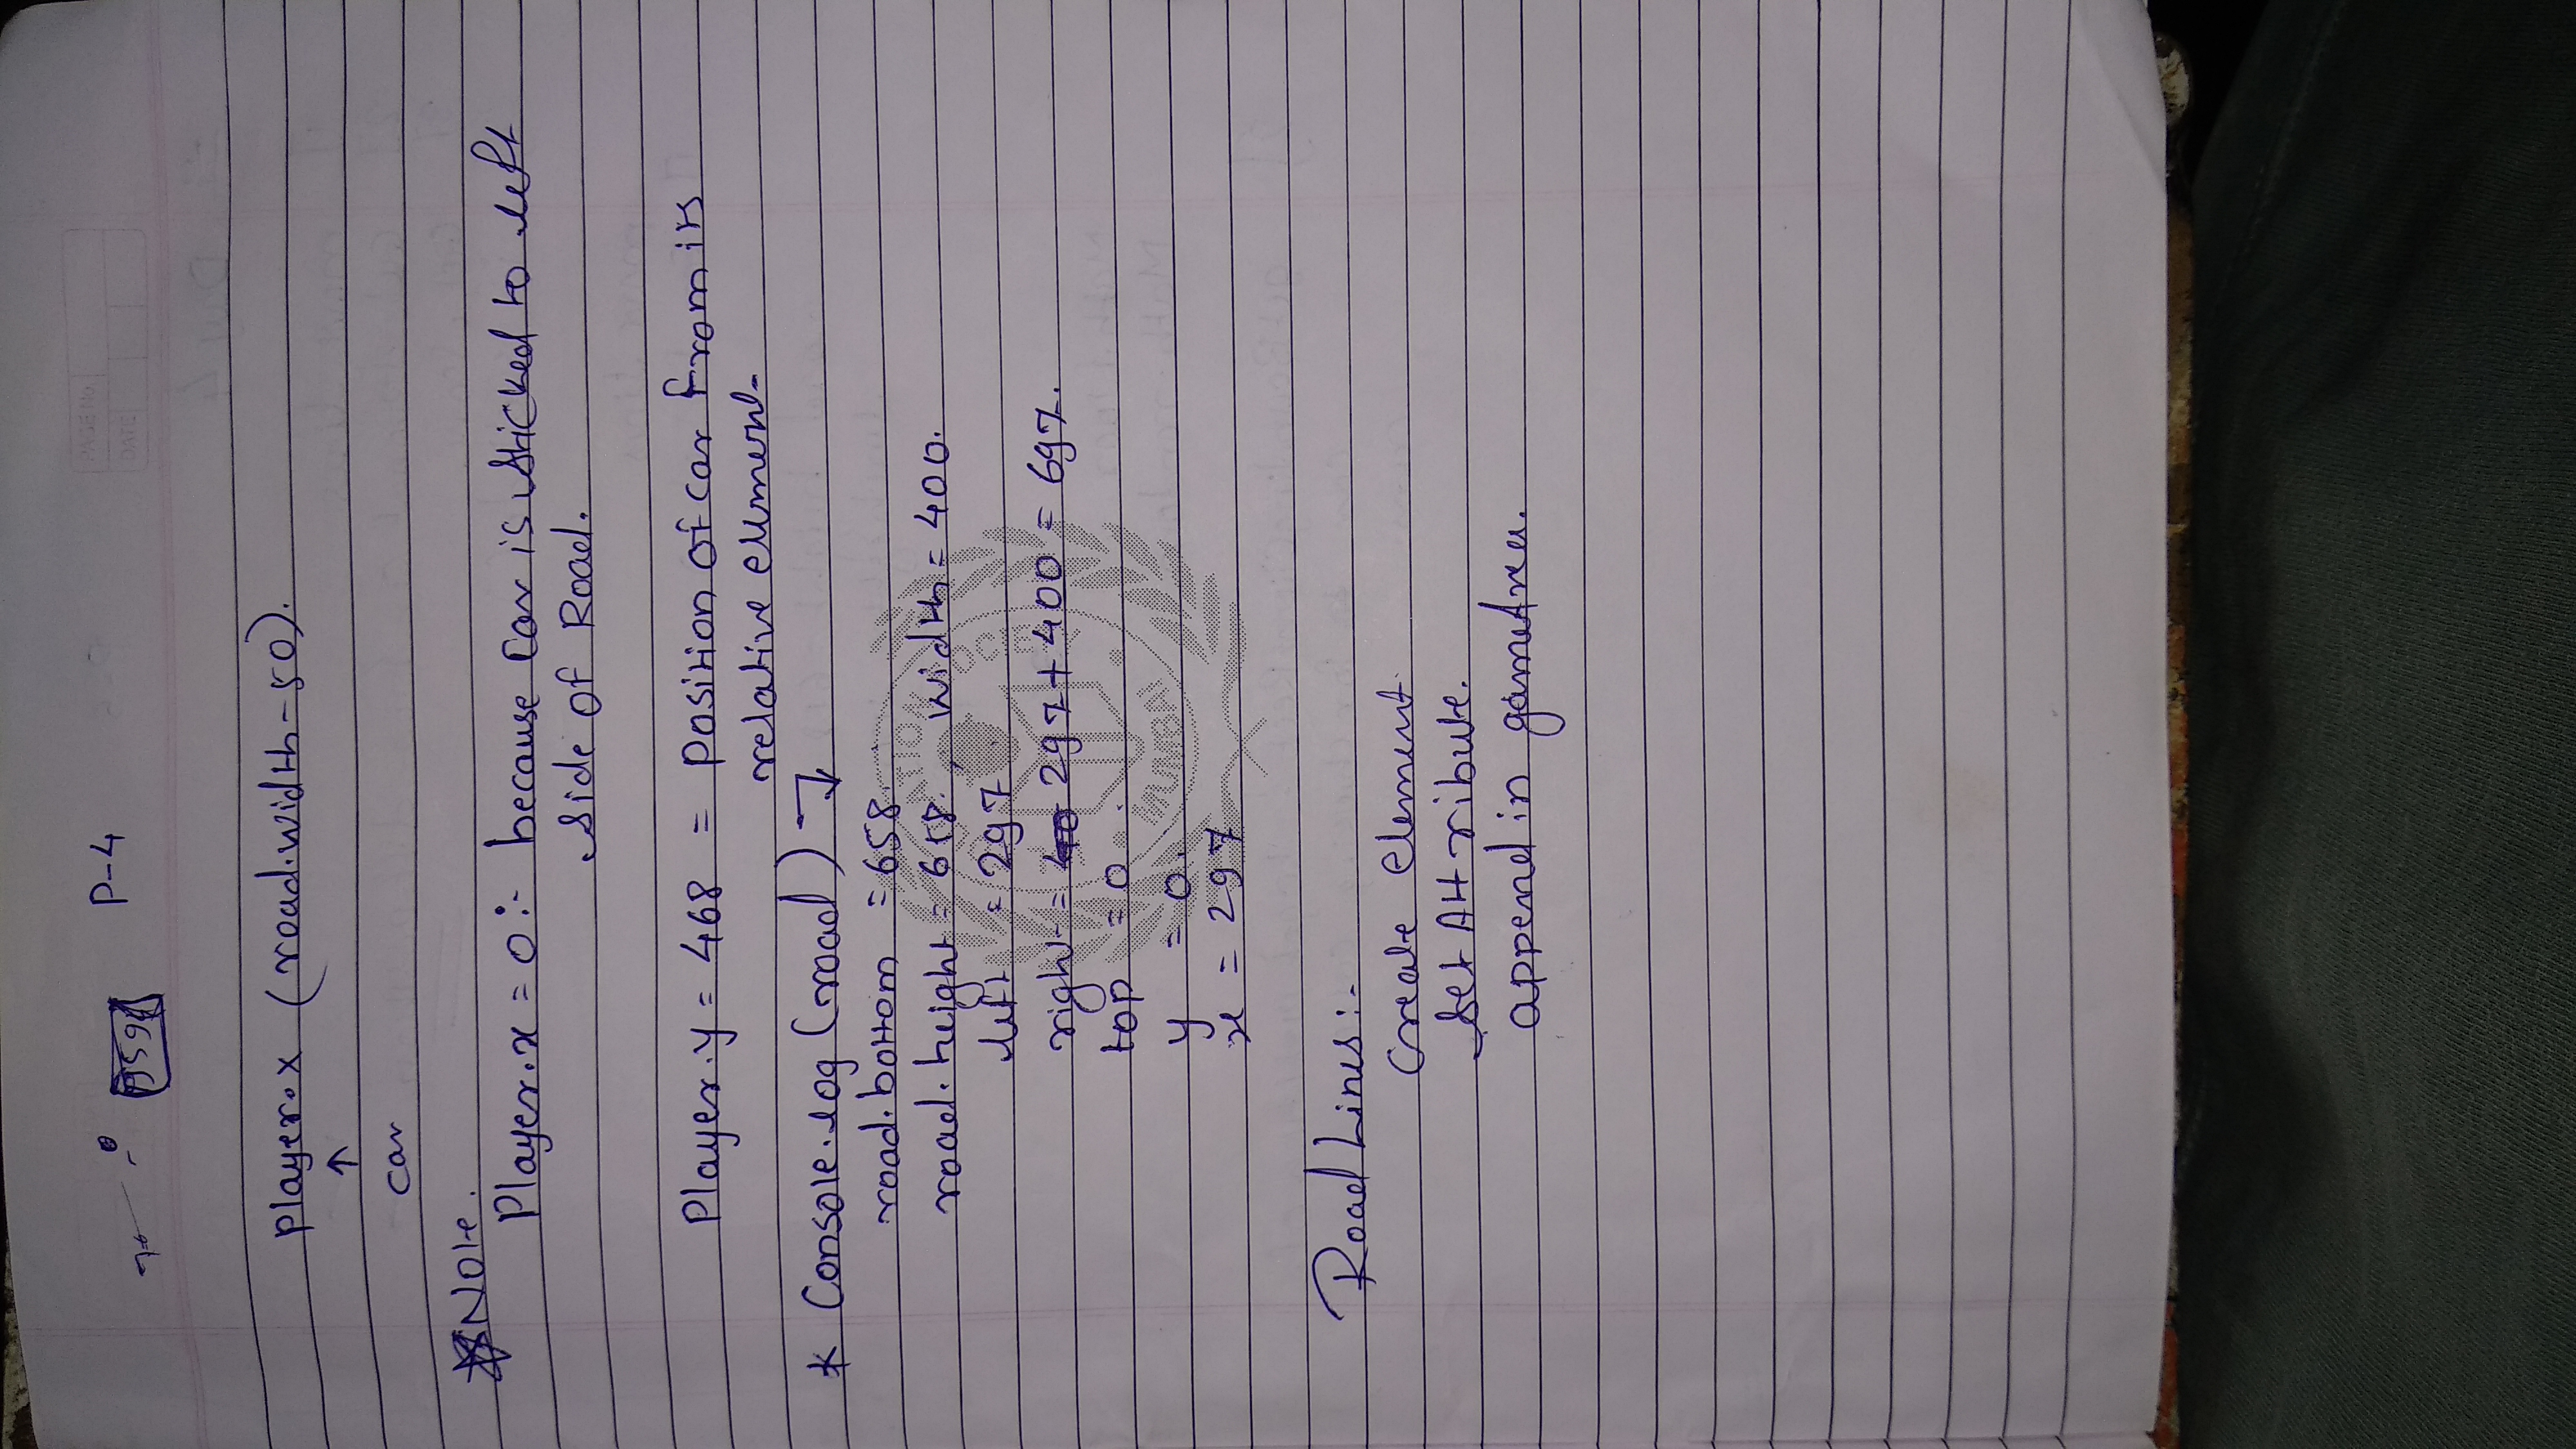 P-4
PAGE No.
DATE
Player.x (road.width-50).
↑
car
Note.
Player.x = 0 :- because Car is sticked to left
side of Road.
Player.y = 468 = position of car from its
relative element.
* Console.log (road) ↴
road.bottom = 658.
road.height = 658. , width = 400.
left = 297
right = 297 + 400 = 697.
top = 0.
y = 0.
x = 297
Road Lines :-
Create element.
set Attribute.
append in gameArea.